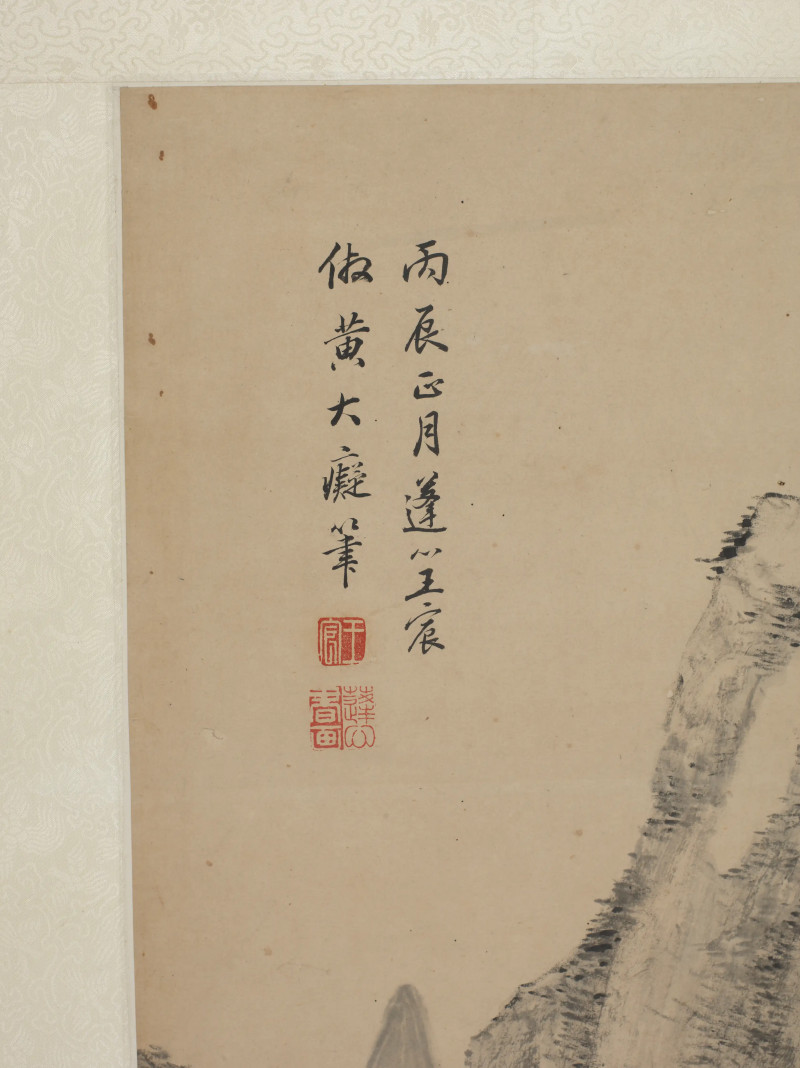 丙辰正月蓬心王宸
倣黄大癡筆
王宸
蓬心書画